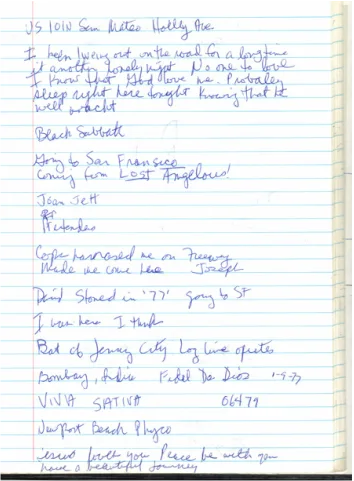 US 101N San Mateo Holly Ave
I been way out on the road for a long time
it another lonely night No one to love
I know that God love me. Probaley
sleep right here tonight Knowing that
well
Black Sabbath
Going to San Fransico
Coming from LOST Angelous!
Joan Jett
Pretenders
harrased me on Freeway
Made me come here Joseph
David Stoned in '77' going to SF
I was here I think
Rat of Jersey City Long live
Bombay, India Fidel Da Dios 1-9-77
VIVA SATIVA 06479
Newport Beach
Jesus loves you Peace be with you
have a beautiful Journey